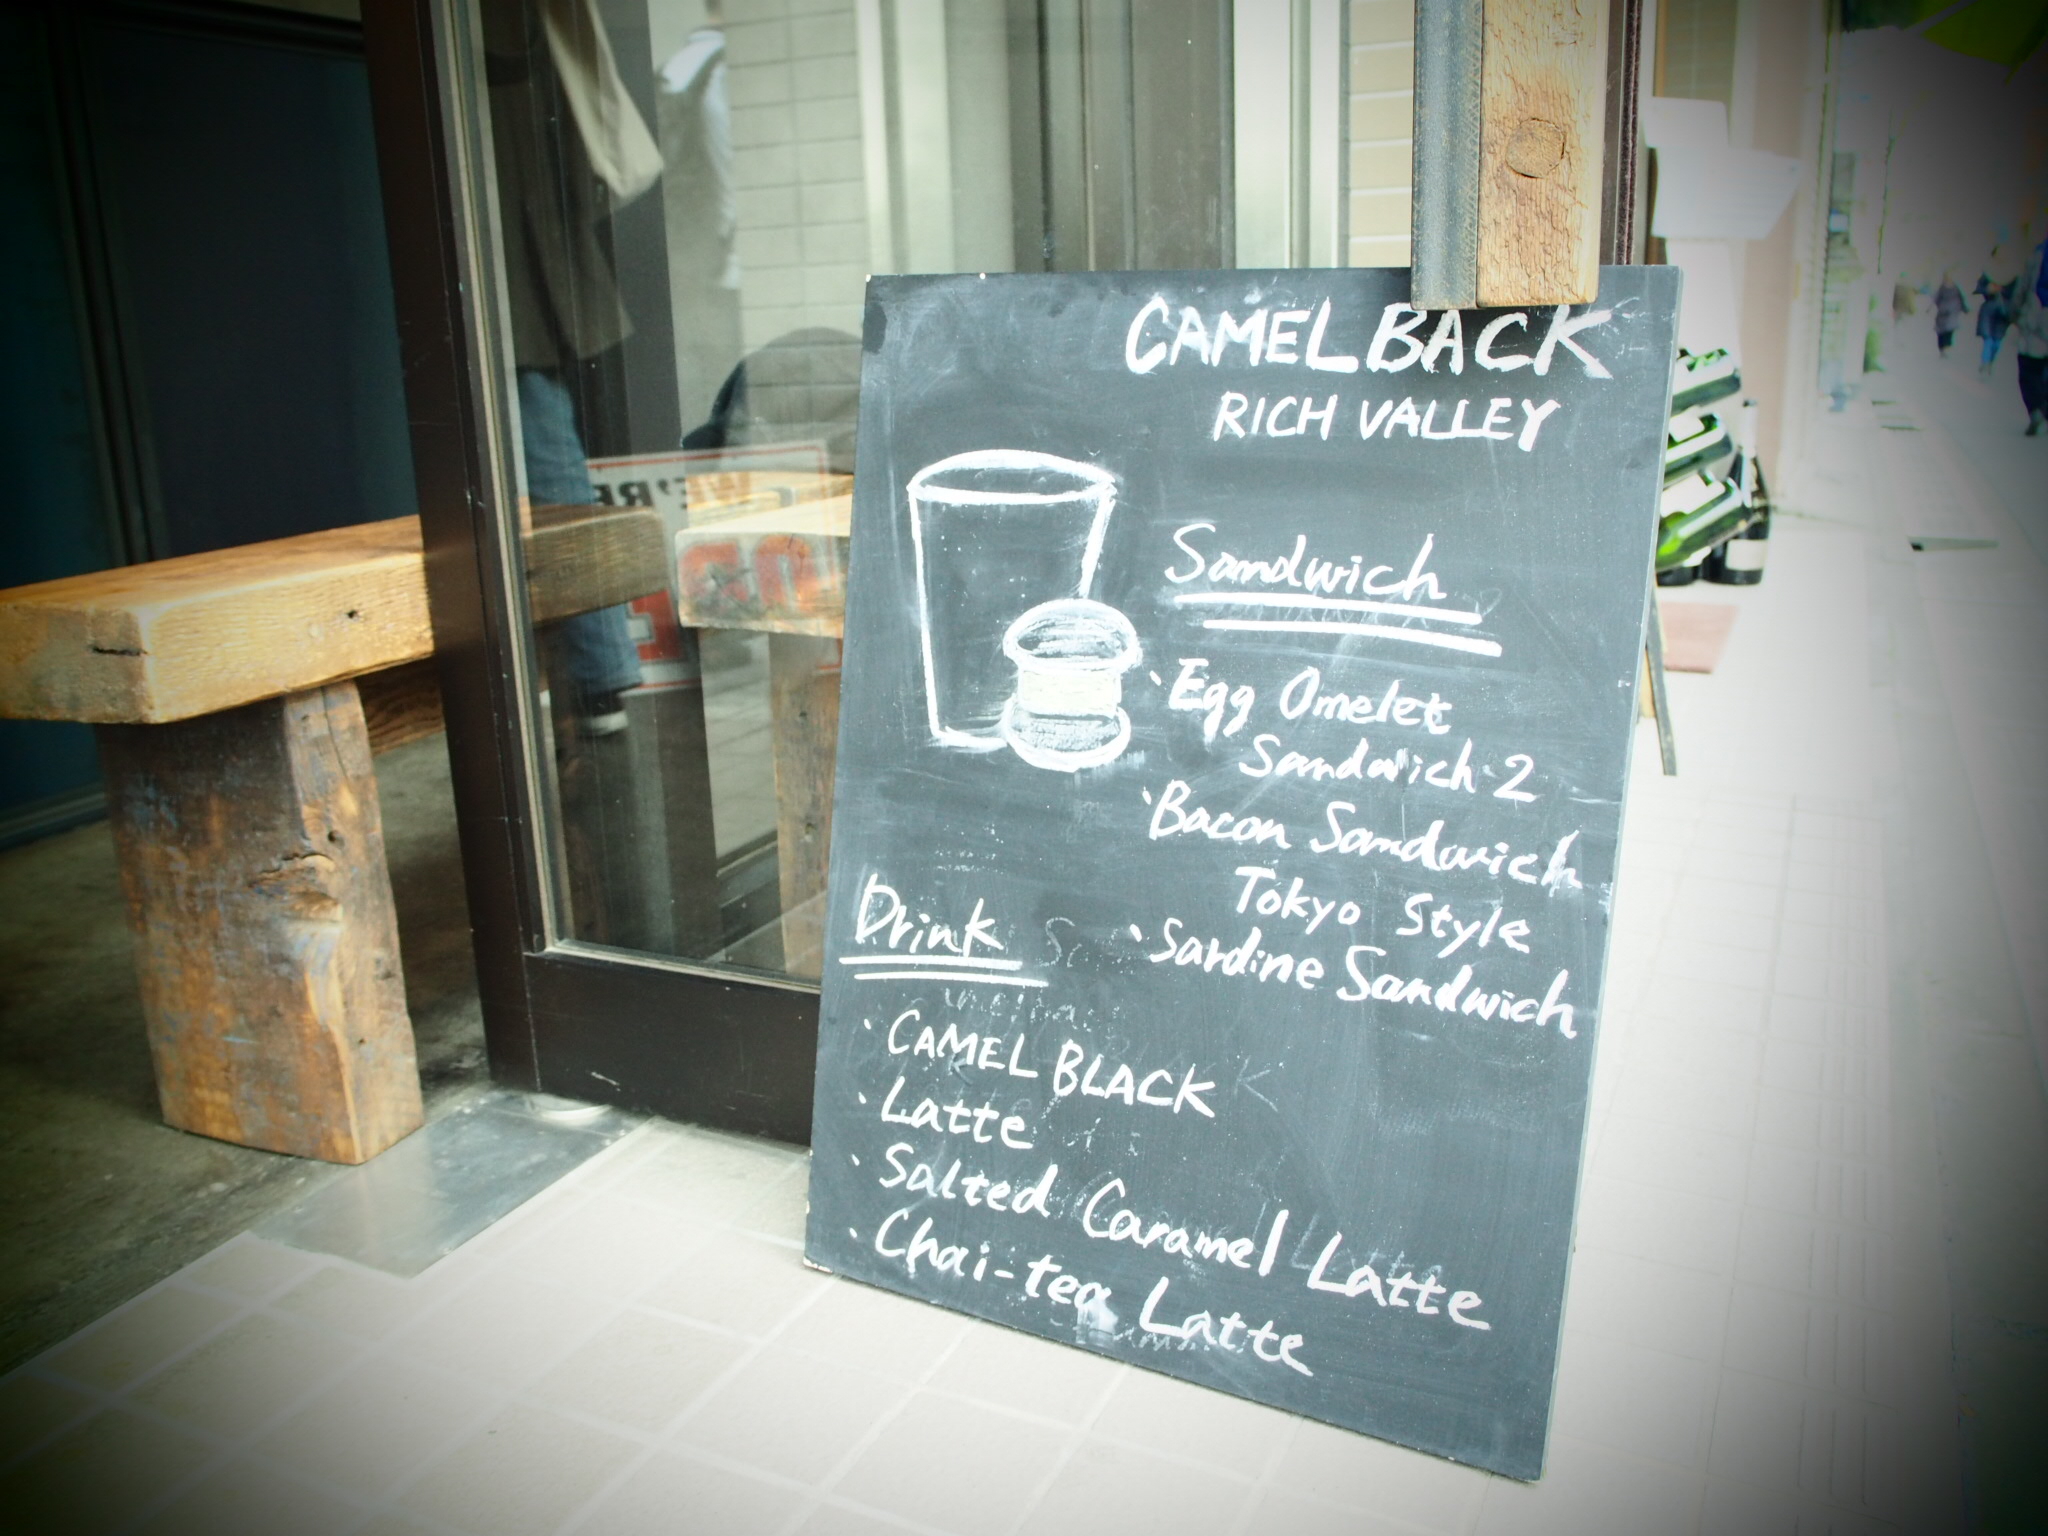 CAMEL BACK
RICH VALLEY
Sandwich
· Egg Omelet
Sandwich 2
· Bacon Sandwich
Tokyo Style
· Sardine Sandwich
Drink
· CAMEL BLACK
· Latte
· Salted Caramel Latte
· Chai-tea Latte
WE'RE